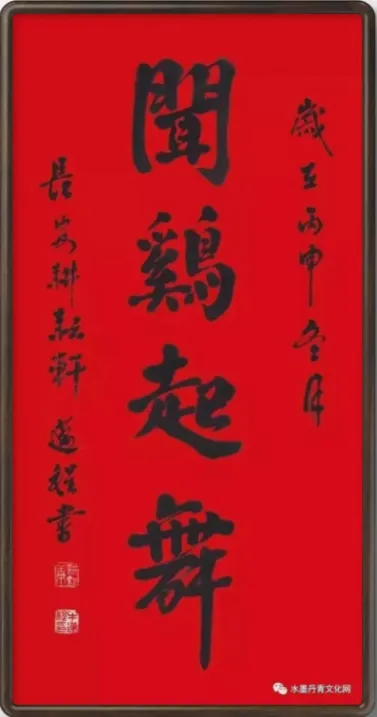 歲在丙申冬月
聞鷄起舞
長安耕耘軒書
水墨丹青文化网